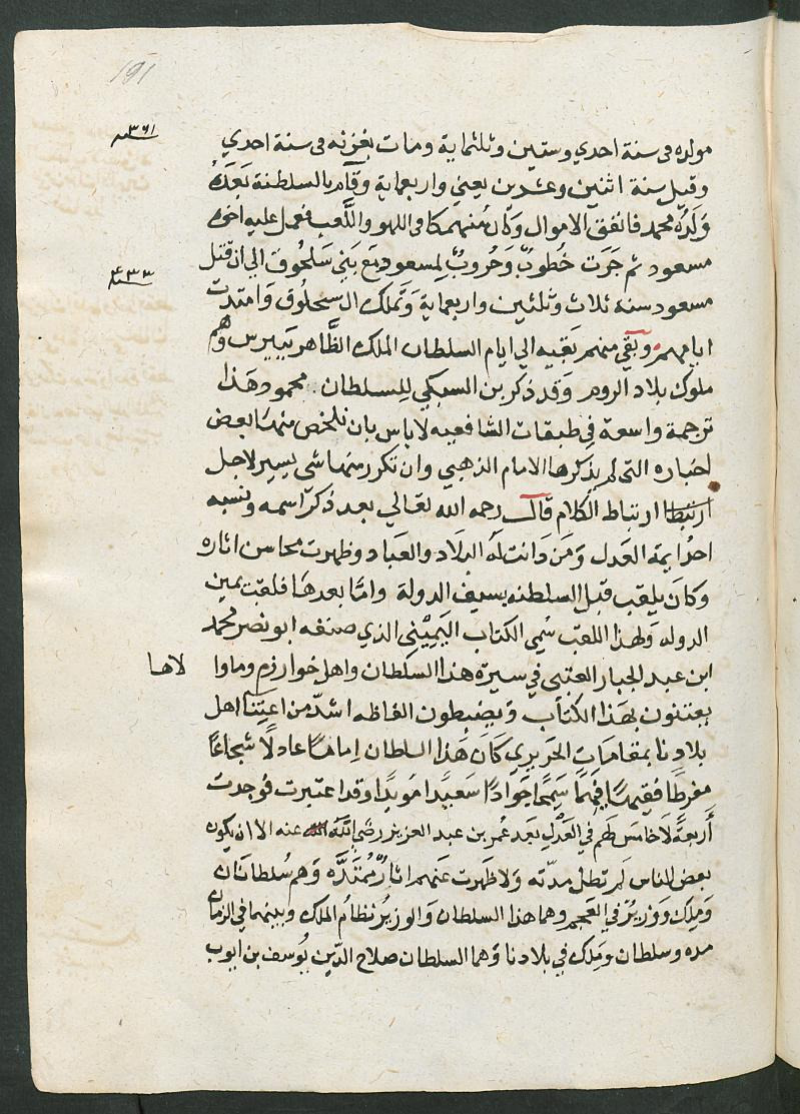 191
مولده فى سنة احدي وستين وثلثماية ومات بغزنه فى سنة احدي
سنة ٣٦١
وقيل سنة اثنين وعشرين يعني واربعماية وقام بالسلطنة بعده
ولده محمد فانفق الاموال وكان منهمكا في اللهو واللعب فعمل عليه اخوه
مسعود ثم جرت خطوب وحروب لمسعود مع بني سلجوق الي ان قتل
سنة ٤٣٣
مسعود سنه ثلاث وثلثين واربعماية وتملك ال سلجوق وامتدت
ايامهم وبقي منهم بقيه الي ايام السلطان الملك الظاهر بيبرس وهم
ملوك بلاد الروم وقد ذكر بن السبكي للسلطان محمود هذا
ترجمة واسعة في طبقات الشافعيه لا باس بان نلخص منها بعض
اخباره التي لم يذكرها الامام الذهبي وان تكرر منها شى يسير لاجل
ارتباط ارتباط الكلام قال رحمه الله تعالي بعد ذكر اسمه ونسبه
احد ايمة العدل ومن دانت له البلاد والعباد وظهرت محاسن اثاره
وكان يلقب قبل السلطنه بسيف الدولة واما بعدها فلقب بيمين
الدوله ولهذا اللقب سمي الكتاب اليميني الذي صنفه ابو نصر محمد
ابن عبد الجبار العتبى في سيرة هذا السلطان واهل خوارزم وماوا
لاها
يعتنون بهذا الكتاب ويضبطون الفاظه اشد من اعتنا اهل
بلادنا بمقامات الحريري كان هذا السلطان اماما عادلا شجاعا
مفرطا فقيها فهما سمحا جوادا سعيدا مويدا وقد اعتبرت فوجدت
أربعة لا خامس لهم في العدل بعد عمر بن عبد العزيز رضي الله عنه الا ان يكون
بعض الناس لم تطل مدته ولا ظهرت عنهم اثار ممتده وهم سلطانان
وملك ووزير في العجم وهما هذا السلطان والوزير نظام الملك وبينهما في الزمان
مده وسلطان وملك في بلادنا وهما السلطان صلاح الدين يوسف بن ايوب